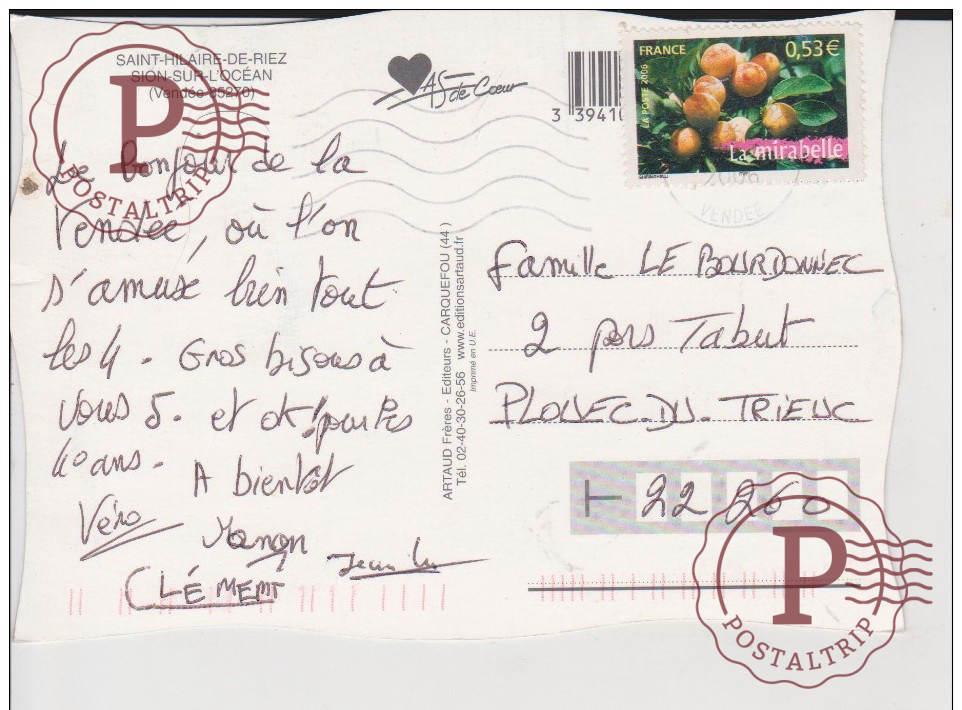 SAINT-HILAIRE-DE-RIEZ
SION-SUR-L'OCÉAN
(Vendée 85270)
AS de Cœur
3 39410
FRANCE
0,53€
LA POSTE 2006
La mirabelle
VENDÉE
Le bonjour de la
Vendée, où l'on
s'amuse bien tout
les 4. Gros bisous à
vous 5. et ok! pour les
40 ans.
A bientôt
Véro
Manon
Jean Lu
CLÉMEMT
ARTAUD Frères - Editeurs - CARQUEFOU (44)
Tél. 02-40-30-26-56 www.editionsartaud.fr
Imprimé en U.E.
famille LE BOURDONNEC
2 pors Tabut
PLOUEC-DU-TRIEUC
22 260
P
POSTALTRIP
P
POSTALTRIP